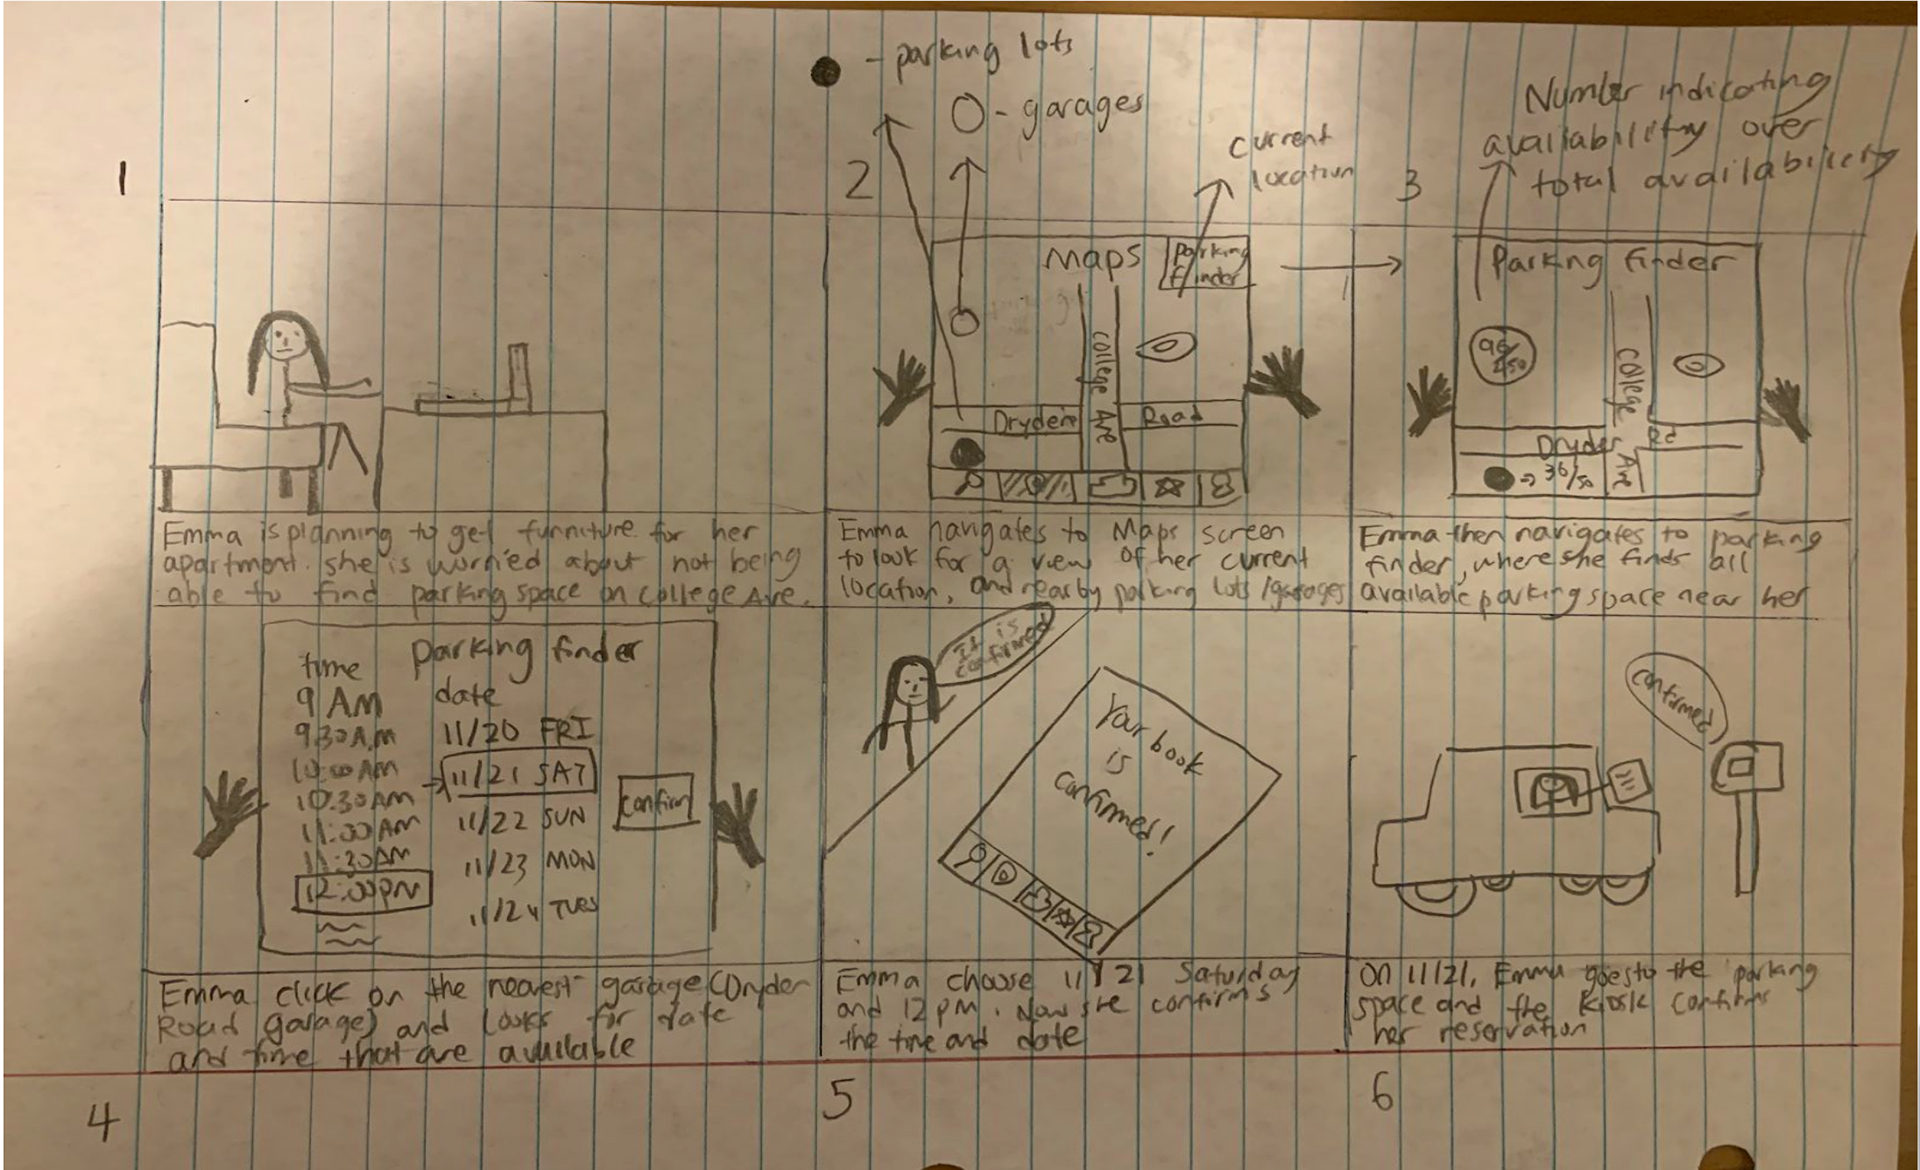 - parking lots
O - garages
1
2
current
location
3
Number indicating
availability over
total availability
Maps
Parking
finder
College Ave
Dryden
Road
Parking finder
96/250
College Ave
Dryden
Rd
→ 36/50
Emma is planning to get furniture for her
apartment. she is worried about not being
able to find parking space on College Ave.
Emma navigates to Maps screen
to look for a view of her current
location, and nearby parking lots/garages
Emma then navigates to parking
finder, where she finds all
available parking space near her
Parking finder
time
date
9 AM
9:30 AM
10:00 AM
10:30 AM
11:00 AM
11:30 AM
12:00 PM
11/20 FRI
11/21 SAT
11/22 SUN
11/23 MON
11/24 TUES
Confirm
It is
confirmed
Your book
is
confirmed!
Confirmed
Emma click on the nearest garage (Dryden
Road garage) and looks for date
and time that are available
Emma choose 11/21 Saturday
and 12 pm. Now she confirms
the time and date
On 11/21, Emma goes to the parking
space and the kiosk confirms
her reservation
4
5
6